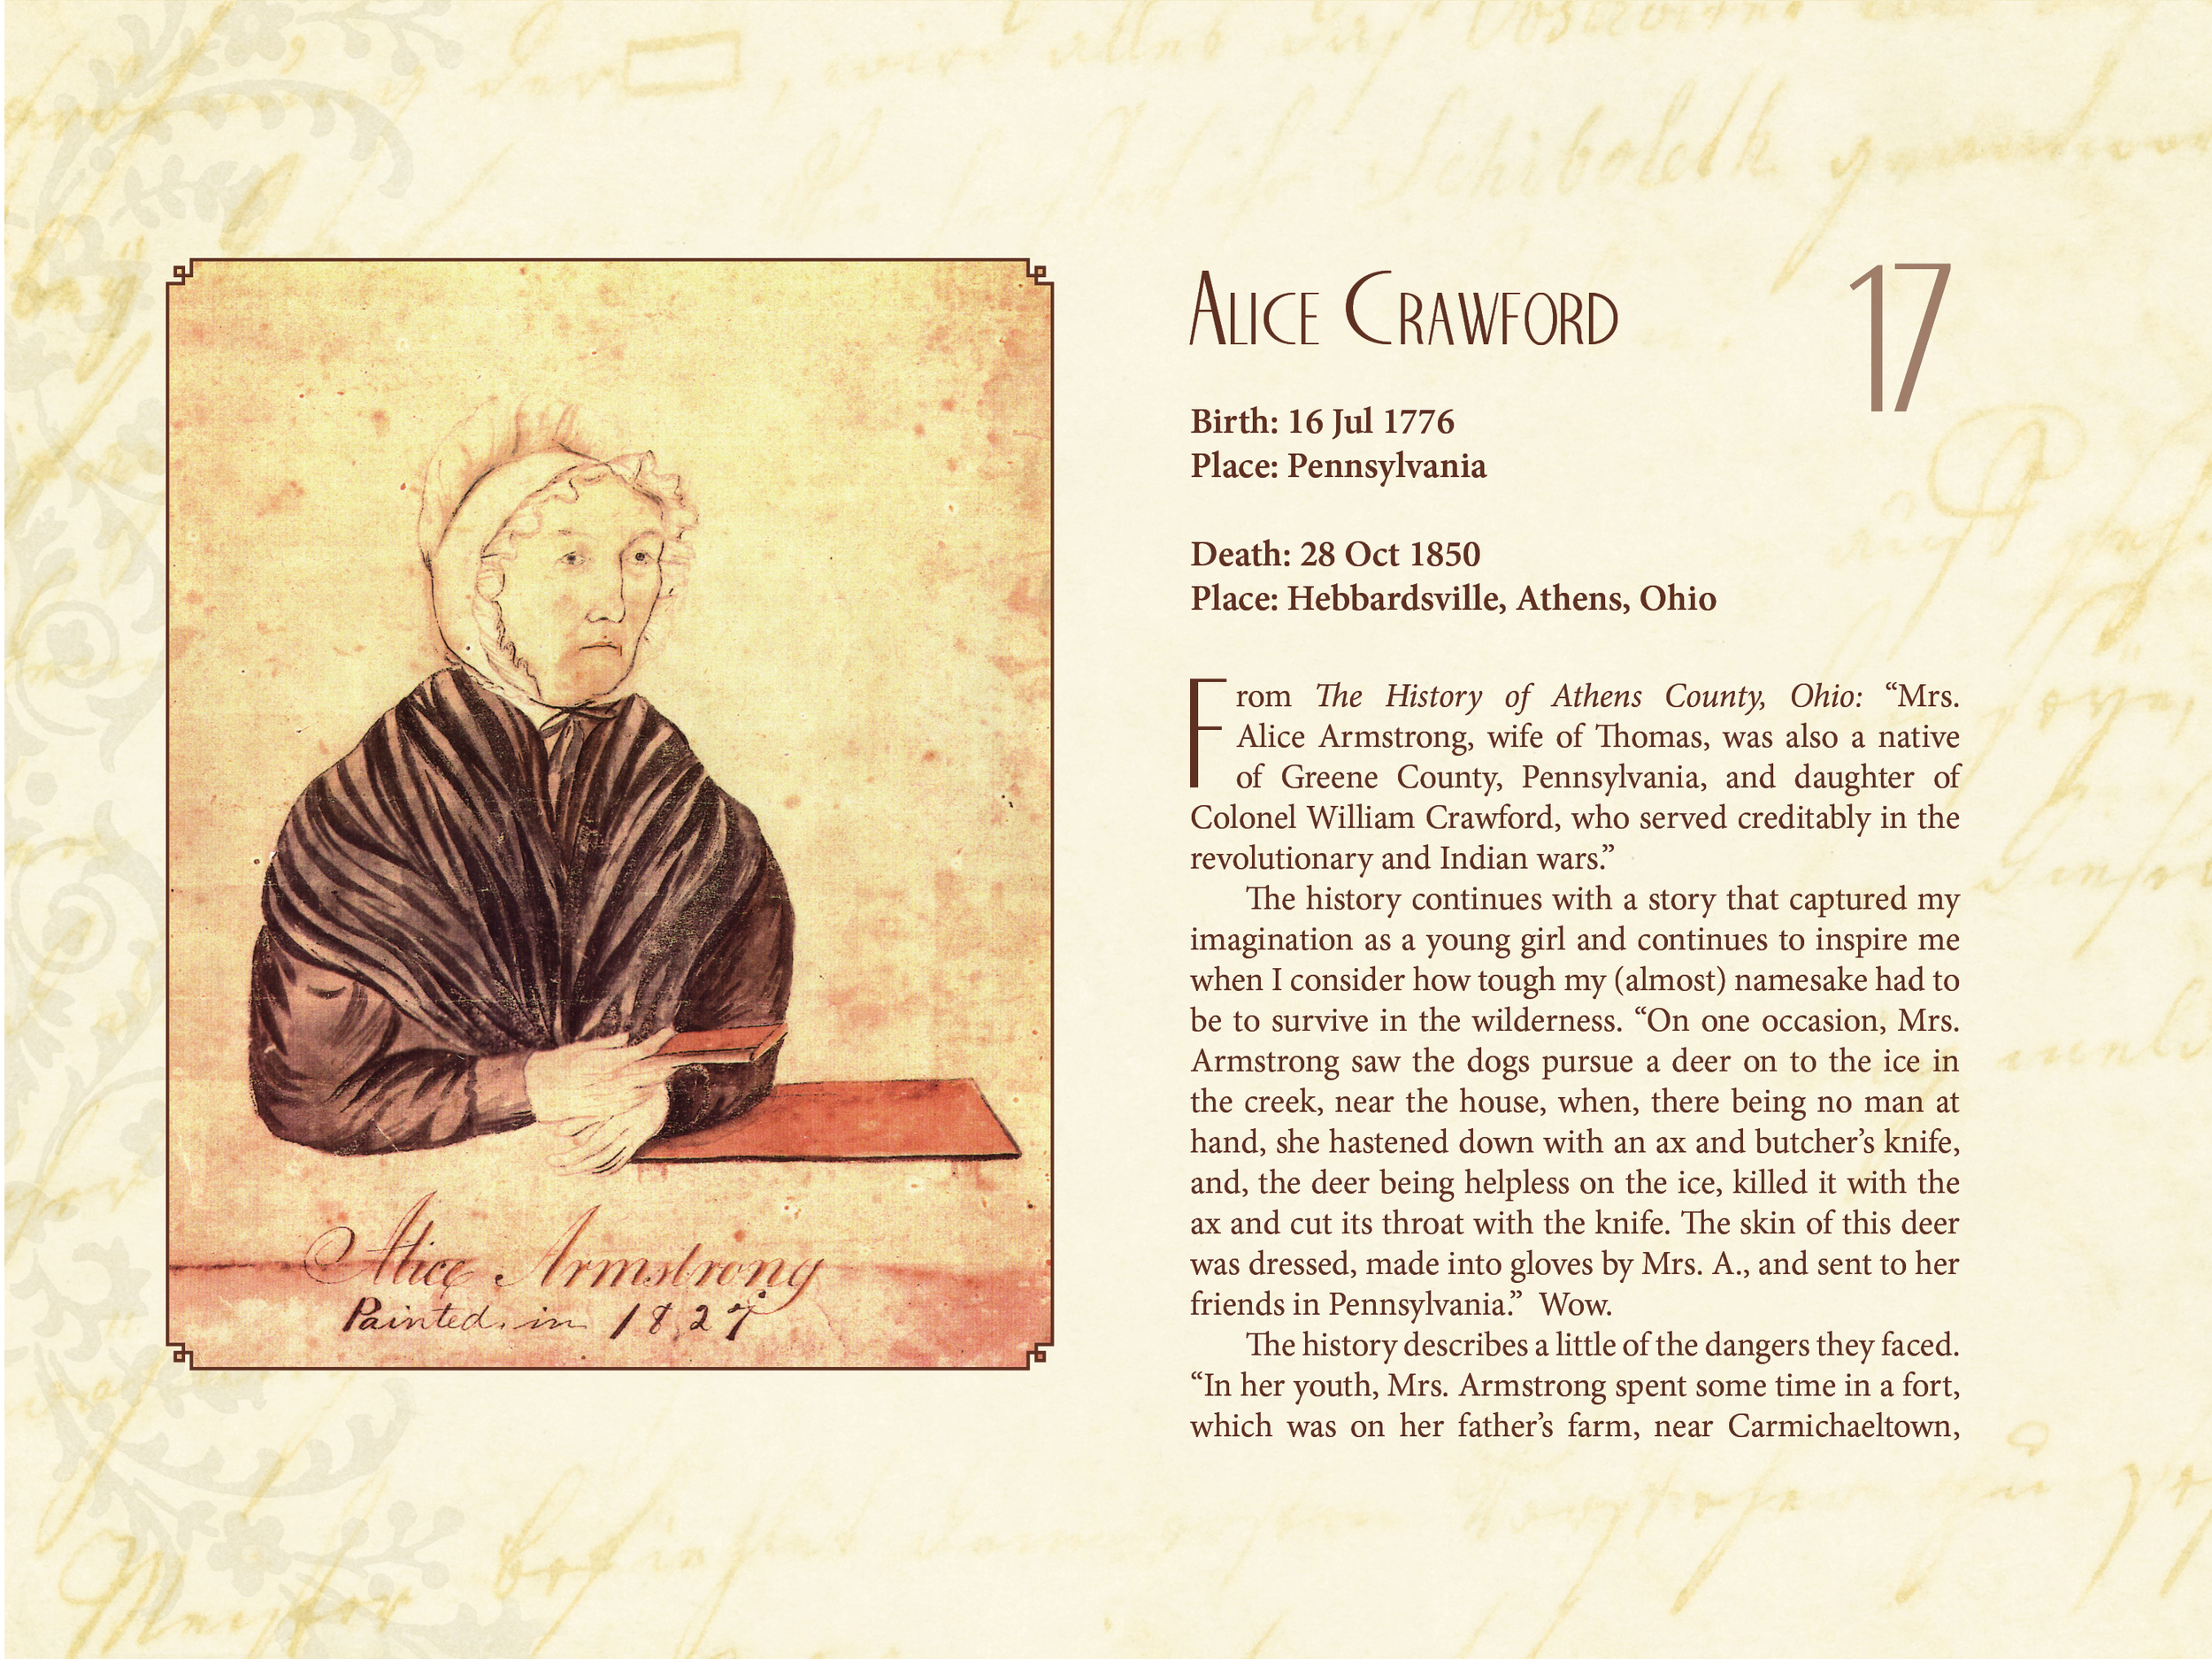 Schiboleth
Alice Crawford
17
Birth: 16 Jul 1776
Place: Pennsylvania
Death: 28 Oct 1850
Place: Hebbardsville, Athens, Ohio
From The History of Athens County, Ohio: “Mrs.
Alice Armstrong, wife of Thomas, was also a native
of Greene County, Pennsylvania, and daughter of
Colonel William Crawford, who served creditably in the
revolutionary and Indian wars.”
The history continues with a story that captured my
imagination as a young girl and continues to inspire me
when I consider how tough my (almost) namesake had to
be to survive in the wilderness. “On one occasion, Mrs.
Armstrong saw the dogs pursue a deer on to the ice in
the creek, near the house, when, there being no man at
hand, she hastened down with an ax and butcher’s knife,
and, the deer being helpless on the ice, killed it with the
ax and cut its throat with the knife. The skin of this deer
was dressed, made into gloves by Mrs. A., and sent to her
friends in Pennsylvania.”  Wow.
The history describes a little of the dangers they faced.
“In her youth, Mrs. Armstrong spent some time in a fort,
which was on her father’s farm, near Carmichaeltown,
Alice Armstrong
Painted in 1827